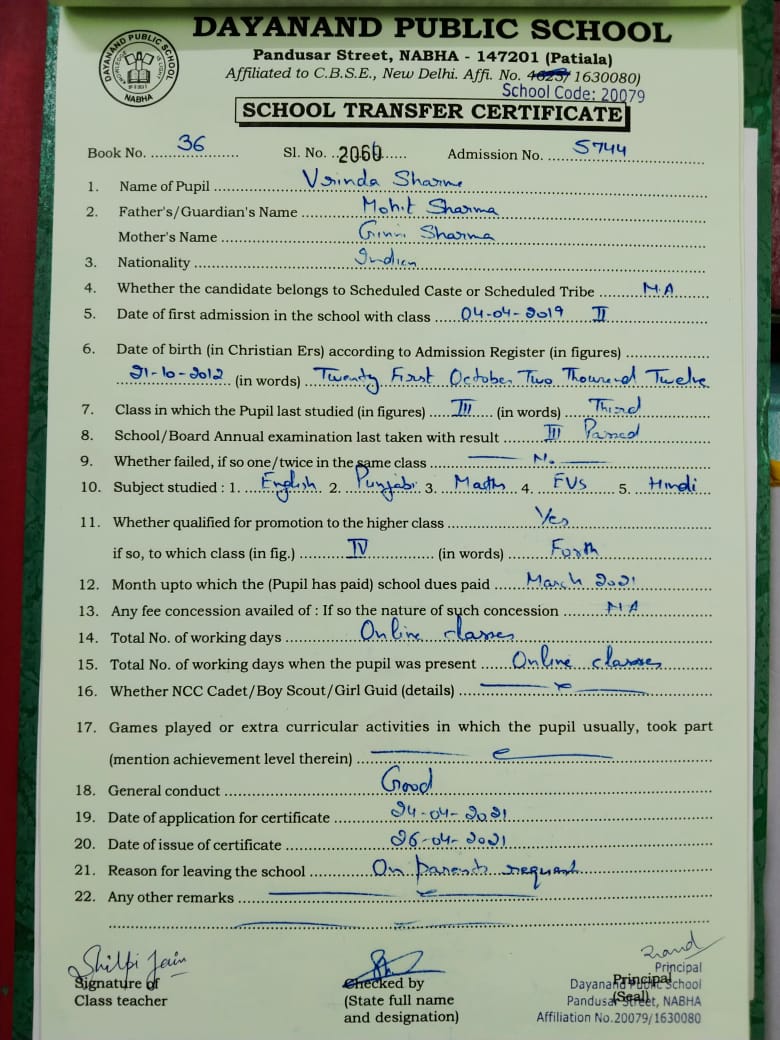 DAYANAND PUBLIC SCHOOL
Pandusar Street, NABHA - 147201 (Patiala)
Affiliated to C.B.S.E., New Delhi. Affi. No. 1630080)
School Code: 20079
DAYANAND PUBLIC SCHOOL
NABHA
SCHOOL TRANSFER CERTIFICATE
Book No. 36 Sl. No. 2060 Admission No. 5744
1. Name of Pupil Vrinda Sharma
2. Father's/Guardian's Name Mohit Sharma
Mother's Name Ginni Sharma
3. Nationality Indian
4. Whether the candidate belongs to Scheduled Caste or Scheduled Tribe N.A
5. Date of first admission in the school with class 04-04-2019 II
6. Date of birth (in Christian Ers) according to Admission Register (in figures)
21-10-2012 (in words) Twenty First October Two Thousand Twelve
7. Class in which the Pupil last studied (in figures) III (in words) Third
8. School/Board Annual examination last taken with result III Passed
9. Whether failed, if so one/twice in the same class No
10. Subject studied : 1. English 2. Punjabi 3. Maths 4. EVS 5. Hindi
11. Whether qualified for promotion to the higher class Yes
if so, to which class (in fig.) IV (in words) Forth
12. Month upto which the (Pupil has paid) school dues paid March 2021
13. Any fee concession availed of : If so the nature of such concession NA
14. Total No. of working days Online classes
15. Total No. of working days when the pupil was present Online classes
16. Whether NCC Cadet/Boy Scout/Girl Guid (details)
17. Games played or extra curricular activities in which the pupil usually, took part
(mention achievement level therein)
18. General conduct Good
19. Date of application for certificate 24-04-2021
20. Date of issue of certificate 26-04-2021
21. Reason for leaving the school On parents request
22. Any other remarks
Shilpi Jain
Signature of
Class teacher
Checked by
(State full name
and designation)
Principal
(Seal)
Principal
Dayanand Public School
Pandusar Street, NABHA
Affiliation No.20079/1630080